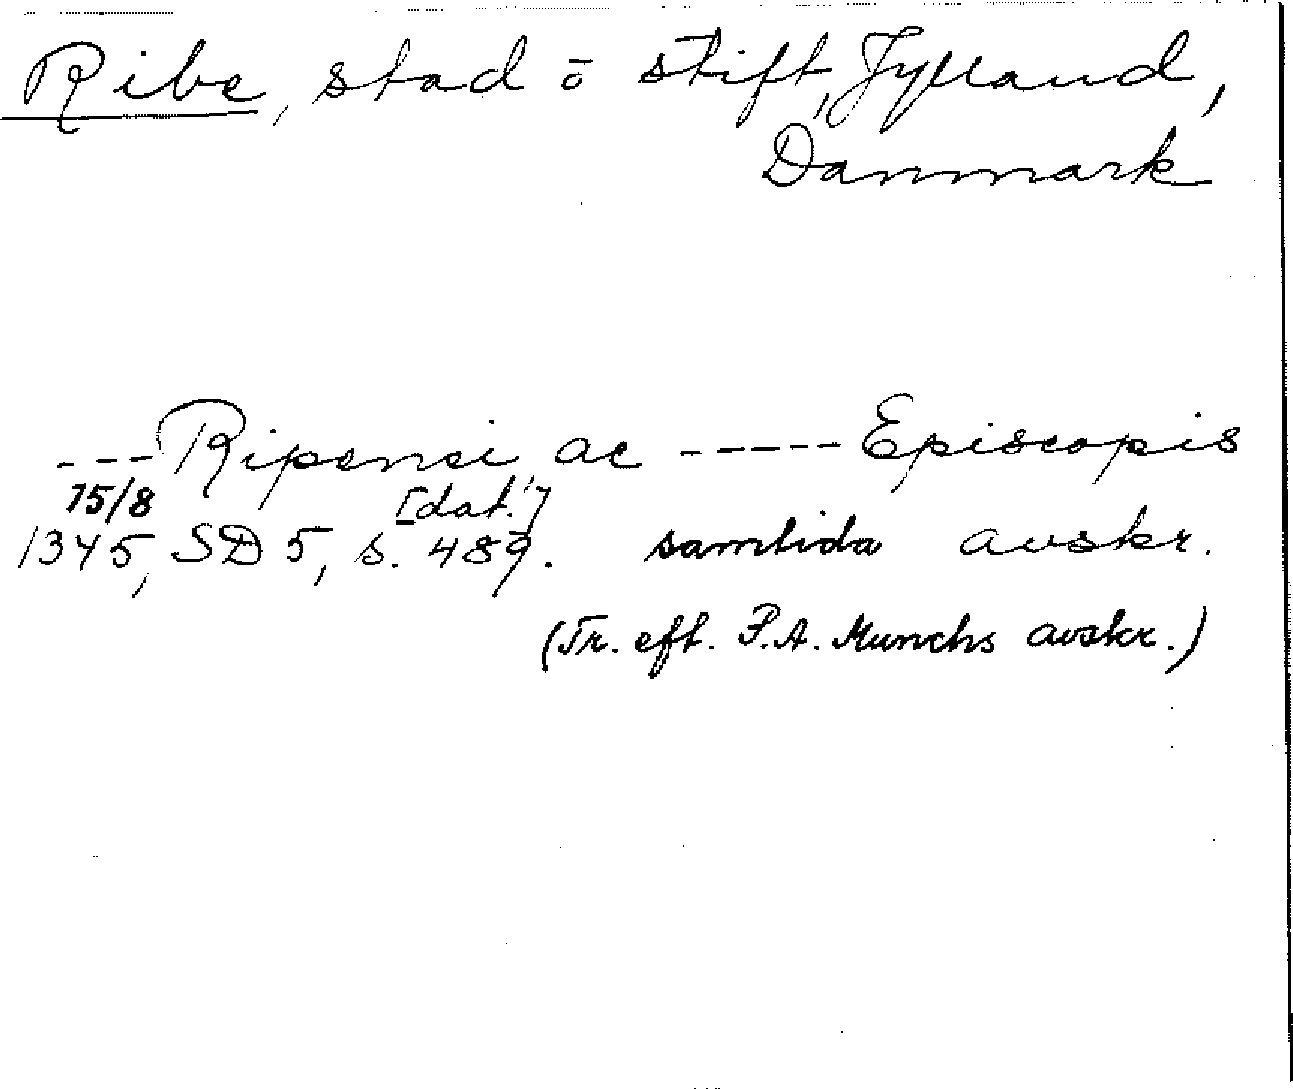 Ribe, stad o stift, Jylland,
Danmark
--- Ripensi ac ----- Episcopis
15/8 [dat.!]
1345, SD 5, s. 489. samtida avskr.
(Tr. eft. P.A. Munchs avskr.)